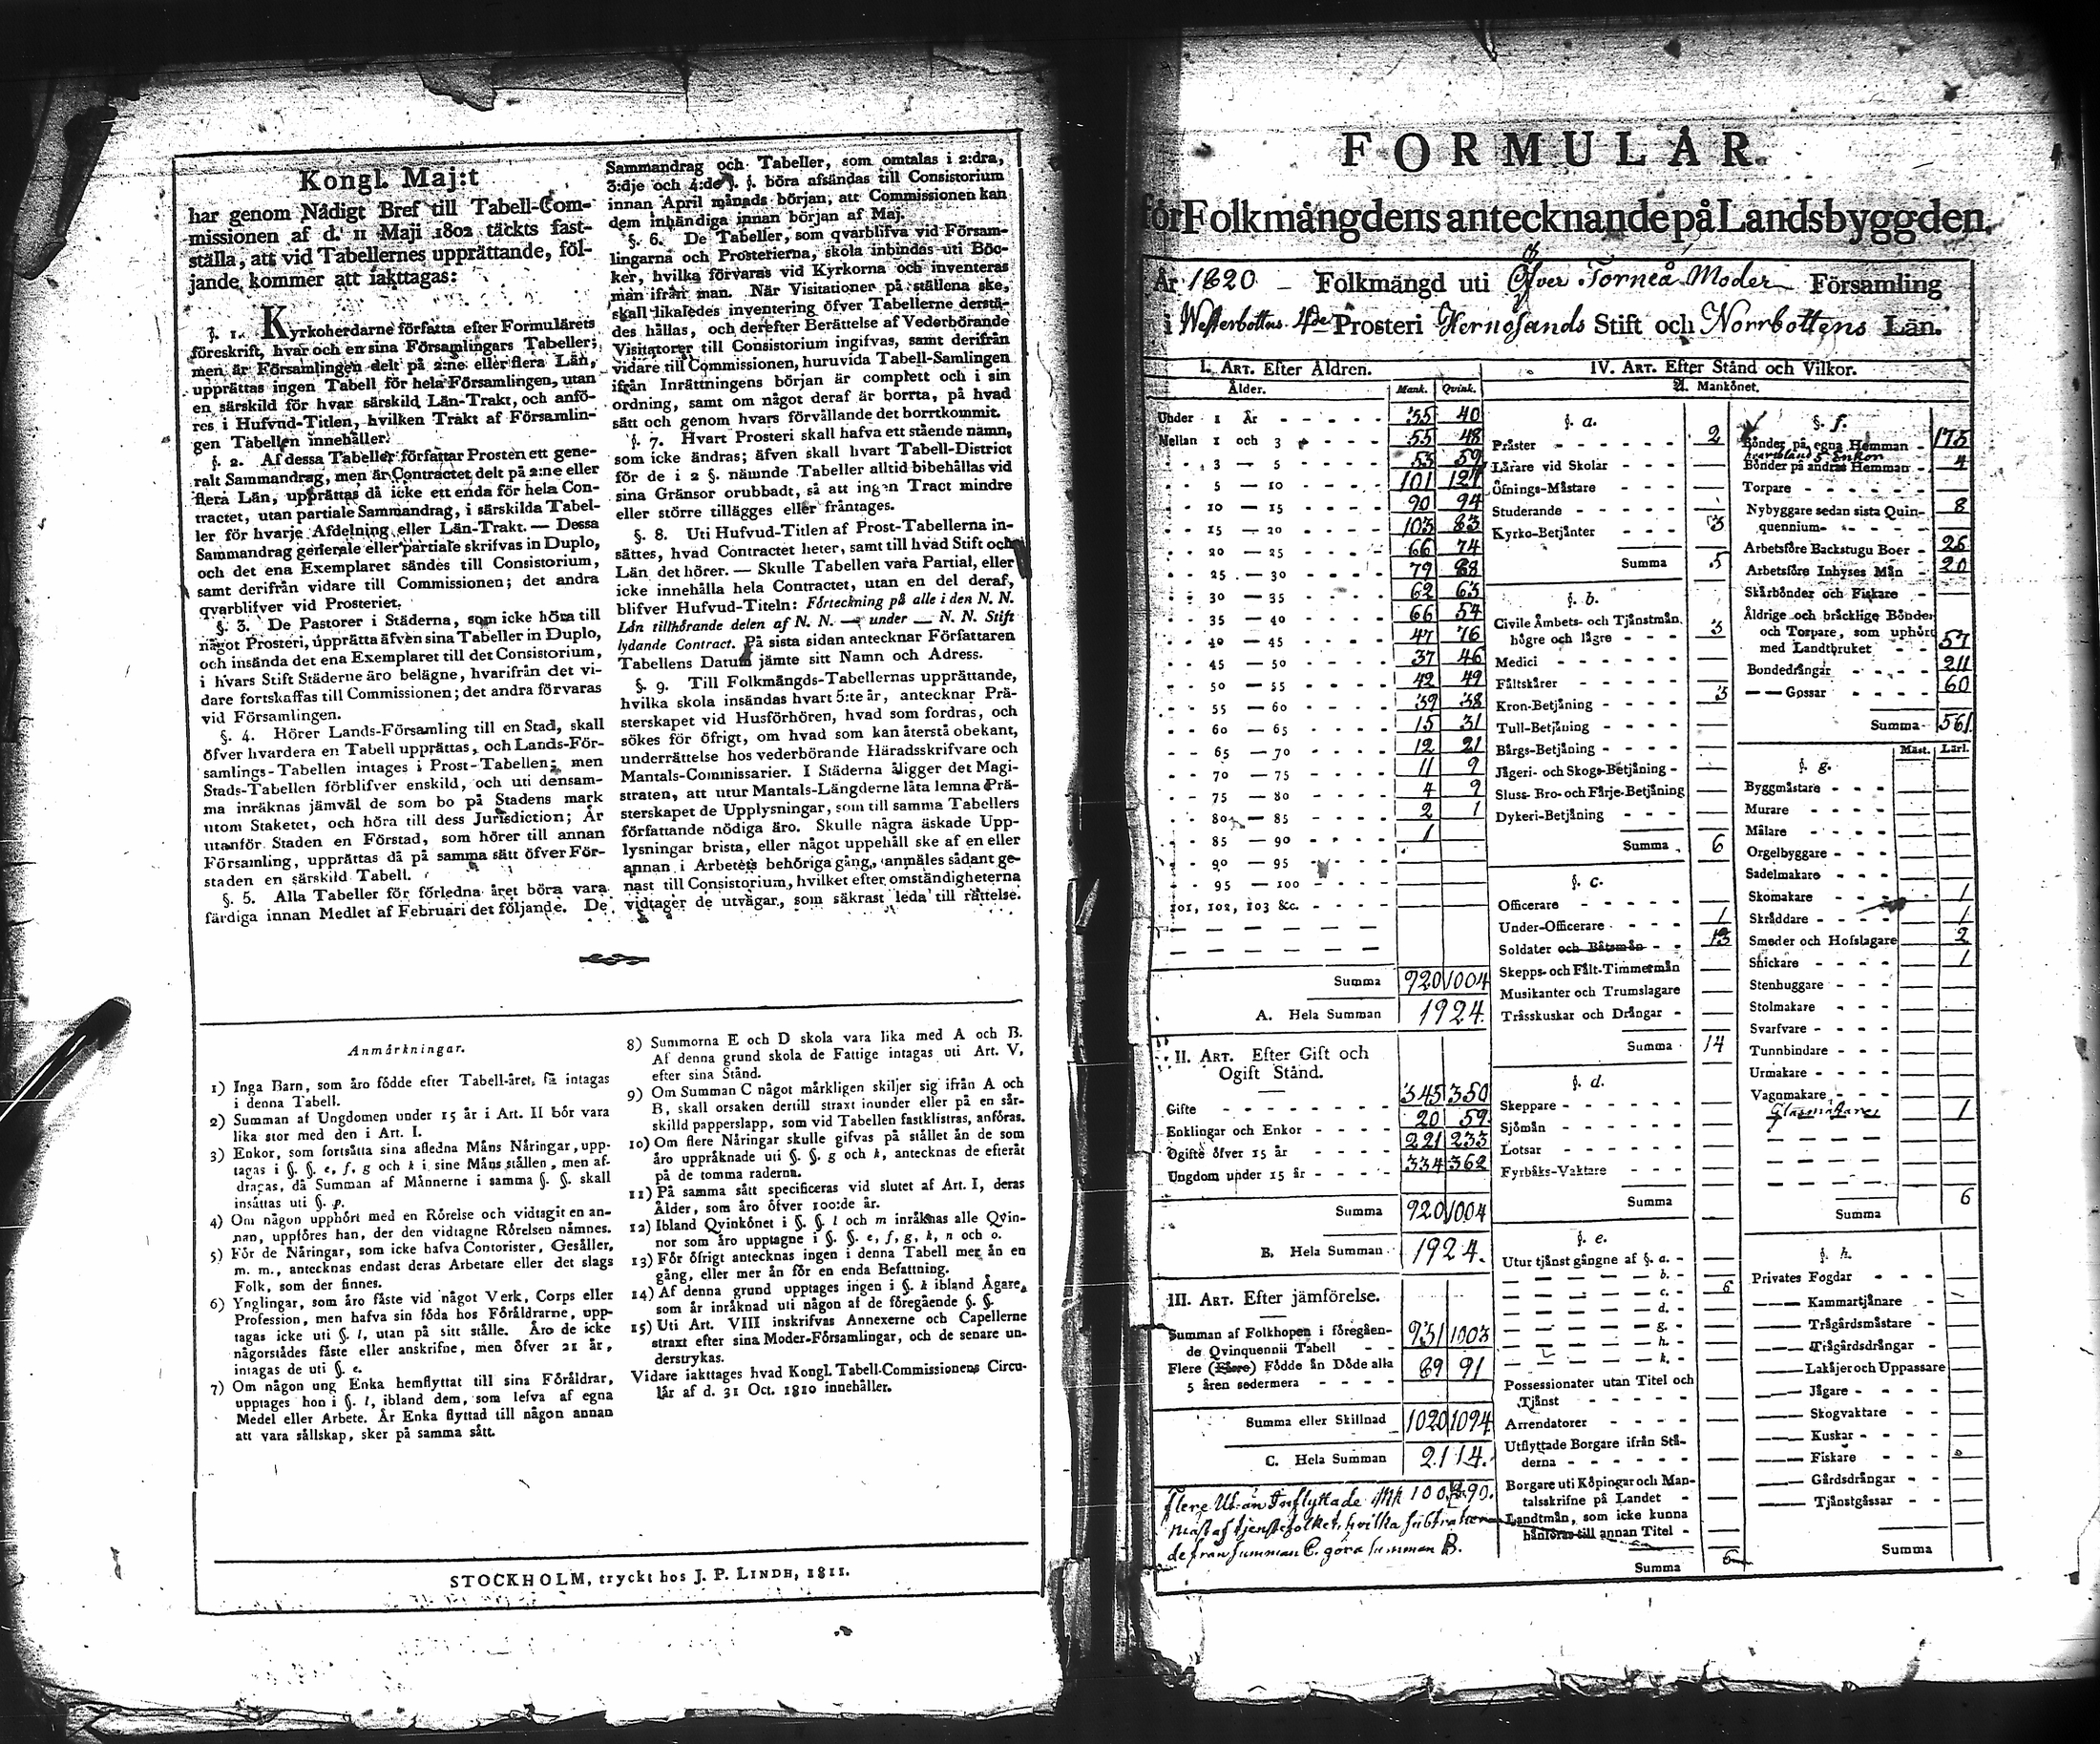 Kongl. Maj:t
har genom Nådigt Bref till Tabell-Com-
missionen af d. 11 Maji 1802 täckts fast-
ställa, att vid Tabellernes upprättande, föl-
jande kommer att iakttagas:
§. 1. Kyrkoherdarne författa efter Formulärets
föreskrift, hvar och en sina Församlingars Tabeller;
men är Församlingen delt på 2:ne eller flera Län,
upprättas ingen Tabell för hela Församlingen, utan
en särskild för hvar särskild Län-Trakt, och anfö-
res i Hufvud-Titlen, hvilken Trakt af Församlin-
gen Tabellen innehåller.
§. 2. Af dessa Tabeller författar Prosten ett gene-
ralt Sammandrag, men är Contractet delt på 2:ne eller
flera Län, upprättas då icke ett enda för hela Con-
tractet, utan partiale Sammandrag, i särskilda Tabel-
ler för hvarje Afdelning eller Län-Trakt. — Dessa
Sammandrag generale eller partiale skrifvas in Duplo,
och det ena Exemplaret sändes till Consistorium,
samt derifrån vidare till Commissionen; det andra
qvarblifver vid Prosteriet.
§. 3. De Pastorer i Städerna, som icke höra till
något Prosteri, upprätta äfven sina Tabeller in Duplo,
och insända det ena Exemplaret till det Consistorium,
i hvars Stift Städerne äro belägne, hvarifrån det vi-
dare fortskaffas till Commissionen; det andra förvaras
vid Församlingen.
§. 4. Hörer Lands-Församling till en Stad, skall
öfver hvardera en Tabell upprättas, och Lands-För-
samlings-Tabellen intages i Prost-Tabellen; men
Stads-Tabellen förblifver enskild, och uti densam-
ma inräknas jämväl de som bo på Stadens mark
utom Staketet, och höra till dess Jurisdiction; Är
utanför Staden en Förstad, som hörer till annan
Församling, upprättas då på samma sätt öfver För-
staden en särskild Tabell.
§. 5. Alla Tabeller för förledna året böra vara
färdiga innan Medlet af Februari det följande. De
Sammandrag och Tabeller, som omtalas i 2:dra,
3:dje och 4:de §. §. böra afsändas till Consistorium
innan April månads början, att Commissionen kan
dem inhändiga innan början af Maj.
§. 6. De Tabeller, som qvarblifva vid Försam-
lingarna och Prosterierna, skola inbindas uti Böc-
ker, hvilka förvaras vid Kyrkorna och inventeras
man ifrån man. När Visitationer på ställena ske,
skall likaledes inventering öfver Tabellerne derstä-
des hållas, och derefter Berättelse af Vederbörande
Visitatorer till Consistorium ingifvas, samt derifrån
vidare till Commissionen, huruvida Tabell-Samlingen
ifrån Inrättningens början är complett och i sin
ordning, samt om något deraf är borrta, på hvad
sätt och genom hvars förvållande det borrtkommit.
§. 7. Hvart Prosteri skall hafva ett stående namn,
som icke ändras; äfven skall hvart Tabell-District
för de i 2 §. nämnde Tabeller alltid bibehållas vid
sina Gränsor orubbadt, så att ingen Tract mindre
eller större tillägges eller fråntages.
§. 8. Uti Hufvud-Titlen af Prost-Tabellerna in-
sättes, hvad Contractet heter, samt till hvad Stift och
Län det hörer. — Skulle Tabellen vara Partial, eller
icke innehålla hela Contractet, utan en del deraf,
blifver Hufvud-Titeln: Förteckning på alle i den N. N.
Län tillhörande delen af N. N. — under — N. N. Stift
lydande Contract. På sista sidan antecknar Författaren
Tabellens Datum jämte sitt Namn och Adress.
§. 9. Till Folkmängds-Tabellernas upprättande,
hvilka skola insändas hvart 5:te år, antecknar Prä-
sterskapet vid Husförhören, hvad som fordras, och
sökes för öfrigt, om hvad som kan återstå obekant,
underrättelse hos vederbörande Häradsskrifvare och
Mantals-Commissarier. I Städerna åligger det Magi-
straten, att utur Mantals-Längderne låta lemna Prä-
sterskapet de Upplysningar, som till samma Tabellers
författande nödiga äro. Skulle några äskade Upp-
lysningar brista, eller något uppehåll ske af en eller
annan i Arbetets behöriga gång, anmäles sådant ge-
nast till Consistorium, hvilket efter omständigheterna
vidtager de utvägar, som säkrast leda till rättelse.
Anmärkningar.
1) Inga Barn, som äro födde efter Tabell-året, få intagas
i denna Tabell.
2) Summan af Ungdomen under 15 år i Art. II bör vara
lika stor med den i Art. I.
3) Enkor, som fortsätta sina afledna Mäns Näringar, upp-
tagas i §. §. e, f, g och k i sine Mäns ställen, men af-
dragas, då Summan af Männerne i samma §. §. skall
insättas uti §. p.
4) Om någon upphört med en Rörelse och vidtagit en an-
nan, uppföres han, der den vidtagne Rörelsen nämnes.
5) För de Näringar, som icke hafva Contorister, Gesäller,
m. m., antecknas endast deras Arbetare eller det slags
Folk, som der finnes.
6) Ynglingar, som äro fäste vid något Verk, Corps eller
Profession, men hafva sin föda hos Föräldrarne, upp-
tagas icke uti §. l, utan på sitt ställe. Äro de icke
någorstädes fäste eller anskrifne, men öfver 21 år,
intagas de uti §. e.
7) Om någon ung Enka hemflyttat till sina Föräldrar,
upptages hon i §. l, ibland dem, som lefva af egna
Medel eller Arbete. Är Enka flyttad till någon annan
att vara sällskap, sker på samma sätt.
8) Summorna E och D skola vara lika med A och B.
Af denna grund skola de Fattige intagas uti Art. V,
efter sina Stånd.
9) Om Summan C något märkligen skiljer sig ifrån A och
B, skall orsaken dertill straxt inunder eller på en sär-
skilld papperslapp, som vid Tabellen fastklistras, anföras.
10) Om flere Näringar skulle gifvas på stället än de som
äro uppräknade uti §. §. g och k, antecknas de efteråt
på de tomma raderna.
11) På samma sätt specificeras vid slutet af Art. I, deras
Ålder, som äro öfver 100:de år.
12) Ibland Qvinkönet i §. §. l och m inräknas alle Qvin-
nor som äro upptagne i §. §. e, f, g, k, n och o.
13) För öfrigt antecknas ingen i denna Tabell mer än en
gång, eller mer än för en enda Befattning.
14) Af denna grund upptages ingen i §. k ibland Ägare,
som är inräknad uti någon af de föregående §. §.
15) Uti Art. VIII inskrifvas Annexerne och Capellerne
straxt efter sina Moder-Församlingar, och de senare un-
derstrykas.
Vidare iakttages hvad Kongl. Tabell-Commissionens Circu-
lär af d. 31 Oct. 1810 innehåller.
STOCKHOLM, tryckt hos J. P. LINDH, 1811.
FORMULÄR
för Folkmängdens antecknande på Landsbyggden.
År 1820 — Folkmängd uti Öfver Torneå Moder Församling
i Westerbottns 4de Prosteri Hernösands Stift och Norrbottens Län.
I. ART. Efter Åldren.
Ålder. Mank. Qvink.
Under 1 År 35 40
Mellan 1 och 3 55 48
3 — 5 53 59
5 — 10 101 121
10 — 15 90 94
15 — 20 103 83
20 — 25 66 74
25 — 30 79 88
30 — 35 62 63
35 — 40 66 54
40 — 45 47 76
45 — 50 37 46
50 — 55 42 49
55 — 60 39 38
60 — 65 15 31
65 — 70 12 21
70 — 75 11 9
75 — 80 4 9
80 — 85 2 1
85 — 90 1
90 — 95
95 — 100
101, 102, 103 &c.
Summa 920 1004
A. Hela Summan 1924.
II. ART. Efter Gift och
Ogift Stånd.
Gifte 345 350
Enklingar och Enkor 20 59
Ogifte öfver 15 år 221 233
Ungdom under 15 år 334 362
Summa 920 1004
B. Hela Summan 1924.
III. ART. Efter jämförelse.
Summan af Folkhopen i föregåen-
de Qvinquennii Tabell 931 1003
Flere (Färre) Födde än Döde alla
5 åren sedermera 89 91
Summa eller Skillnad 1020 1094
C. Hela Summan 2114.
Flere Ut- än Inflyttade Mk 100, 90.
mäst af tjenstefolket, hvilka subtrahera-
de från summan C. göra summan B.
IV. ART. Efter Stånd och Vilkor.
A. Mankönet.
§. a.
Präster 2
Lärare vid Skolar
Öfnings-Mästare
Studerande
Kyrko-Betjänter 3
Summa 5
§. b.
Civile Ämbets- och Tjänstmän,
högre och lägre 3
Medici
Fältskärer
Kron-Betjäning 3
Tull-Betjäning
Bärgs-Betjäning
Jägeri- och Skogs-Betjäning
Sluss- Bro- och Färje-Betjäning
Dykeri-Betjäning
Summa 6
§. c.
Officerare
Under-Officerare 1
Soldater och Båtsmän 13
Skepps- och Fält-Timmermän
Musikanter och Trumslagare
Trässkuskar och Drängar
Summa 14
§. d.
Skeppare
Sjömän
Lotsar
Fyrbåks-Vaktare
Summa
§. e.
Utur tjänst gångne af §. a.
b.
c. 6
d.
g.
h.
k.
Possessionater utan Titel och
Tjänst
Arrendatorer
Utflyttade Borgare ifrån Stä-
derna
Borgare uti Köpingar och Man-
talsskrifne på Landet
Landtmän, som icke kunna
hänföras till annan Titel
Summa 6
§. f.
Bönder på egna Hemman 175
hvaribland 5 Enkor
Bönder på andras Hemman 4
Torpare
Nybyggare sedan sista Quin-
quennium 8
Arbetsföre Backstugu Boer 26
Arbetsföre Inhyses Män 20
Skärbönder och Fiskare
Åldrige och bräcklige Bönder
och Torpare, som uphört
med Landtbruket 57
Bondedrängar 211
— — Gossar 60
Summa 561
§. g. Mäst. Lärl.
Byggmästare
Murare
Målare
Orgelbyggare
Sadelmakare
Skomakare 1
Skräddare 1
Smeder och Hofslagare 2
Snickare 1
Stenhuggare
Stolmakare
Svarfvare
Tunnbindare
Urmakare
Vagnmakare
Glasmästare 1
Summa 6
§. h.
Privates Fogdar
— Kammartjänare
— Trägårdsmästare
— Trägårdsdrängar
— Lakäjer och Uppassare
— Jägare
— Skogvaktare
— Kuskar
— Fiskare
— Gårdsdrängar
— Tjänstgåssar
Summa